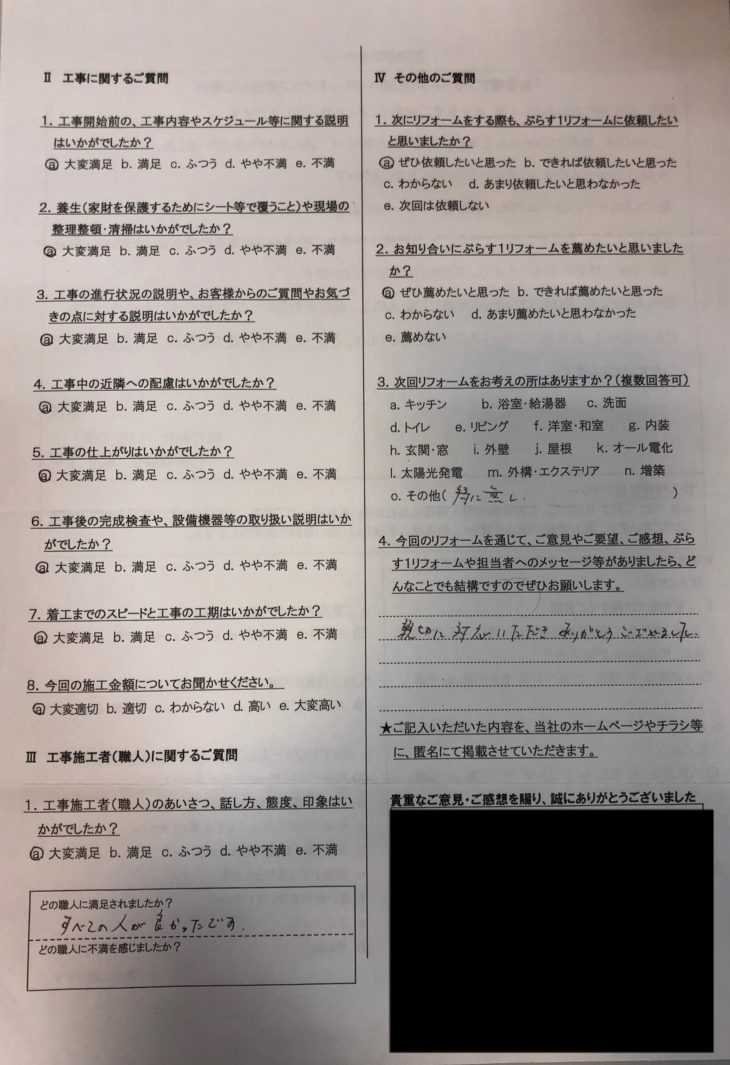 Ⅱ 工事に関するご質問
1. 工事開始前の、工事内容やスケジュール等に関する説明
はいかがでしたか？
ⓐ 大変満足 b. 満足 c. ふつう d. やや不満 e. 不満
2. 養生(家財を保護するためにシート等で覆うこと)や現場の
整理整頓・清掃はいかがでしたか？
ⓐ 大変満足 b. 満足 c. ふつう d. やや不満 e. 不満
3. 工事の進行状況の説明や、お客様からのご質問やお気づ
きの点に対する説明はいかがでしたか？
ⓐ 大変満足 b. 満足 c. ふつう d. やや不満 e. 不満
4. 工事中の近隣への配慮はいかがでしたか？
ⓐ 大変満足 b. 満足 c. ふつう d. やや不満 e. 不満
5. 工事の仕上がりはいかがでしたか？
ⓐ 大変満足 b. 満足 c. ふつう d. やや不満 e. 不満
6. 工事後の完成検査や、設備機器等の取り扱い説明はいか
がでしたか？
ⓐ 大変満足 b. 満足 c. ふつう d. やや不満 e. 不満
7. 着工までのスピードと工事の工期はいかがでしたか？
ⓐ 大変満足 b. 満足 c. ふつう d. やや不満 e. 不満
8. 今回の施工金額についてお聞かせください。
ⓐ 大変適切 b. 適切 c. わからない d. 高い e. 大変高い
Ⅲ 工事施工者(職人)に関するご質問
1. 工事施工者(職人)のあいさつ、話し方、態度、印象はい
かがでしたか？
ⓐ 大変満足 b. 満足 c. ふつう d. やや不満 e. 不満
どの職人に満足されましたか？
すべての人が良かったです.
どの職人に不満を感じましたか？
Ⅳ その他のご質問
1. 次にリフォームをする際も、ぷらす1リフォームに依頼したい
と思いましたか？
ⓐ ぜひ依頼したいと思った b. できれば依頼したいと思った
c. わからない d. あまり依頼したいと思わなかった
e. 次回は依頼しない
2. お知り合いにぷらす1リフォームを薦めたいと思いました
か？
ⓐ ぜひ薦めたいと思った b. できれば薦めたいと思った
c. わからない d. あまり薦めたいと思わなかった
e. 薦めない
3. 次回リフォームをお考えの所はありますか？(複数回答可)
a. キッチン b. 浴室・給湯器 c. 洗面
d. トイレ e. リビング f. 洋室・和室 g. 内装
h. 玄関・窓 i. 外壁 j. 屋根 k. オール電化
l. 太陽光発電 m. 外構・エクステリア n. 増築
o. その他( 特に無し. )
4. 今回のリフォームを通じて、ご意見やご要望、ご感想、ぷら
す1リフォームや担当者へのメッセージ等がありましたら、ど
んなことでも結構ですのでぜひお願いします。
親切に対応いただきありがとうございました.
★ご記入いただいた内容を、当社のホームページやチラシ等
に、匿名にて掲載させていただきます。
貴重なご意見・ご感想を賜り、誠にありがとうございました